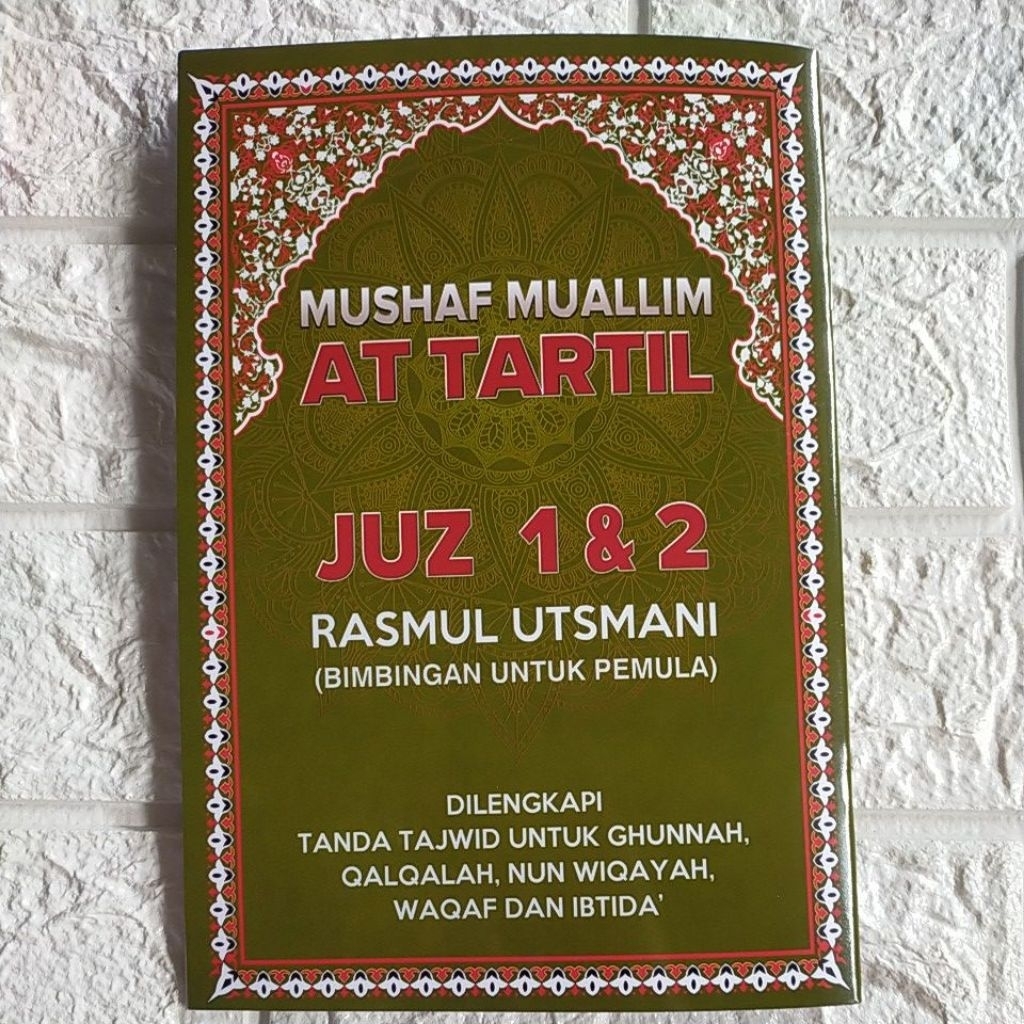 MUSHAF MUALLIM
AT TARTIL
JUZ 1 & 2
RASMUL UTSMANI
(BIMBINGAN UNTUK PEMULA)
DILENGKAPI
TANDA TAJWID UNTUK GHUNNAH,
QALQALAH, NUN WIQAYAH,
WAQAF DAN IBTIDA'